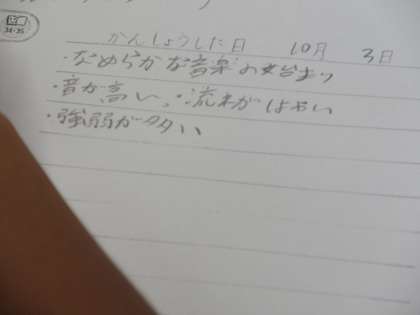 34・35
かんしょうした日 10月 3日
・なめらかな音楽の始まり
・音が高い、・流れがはやい
・強弱が多い